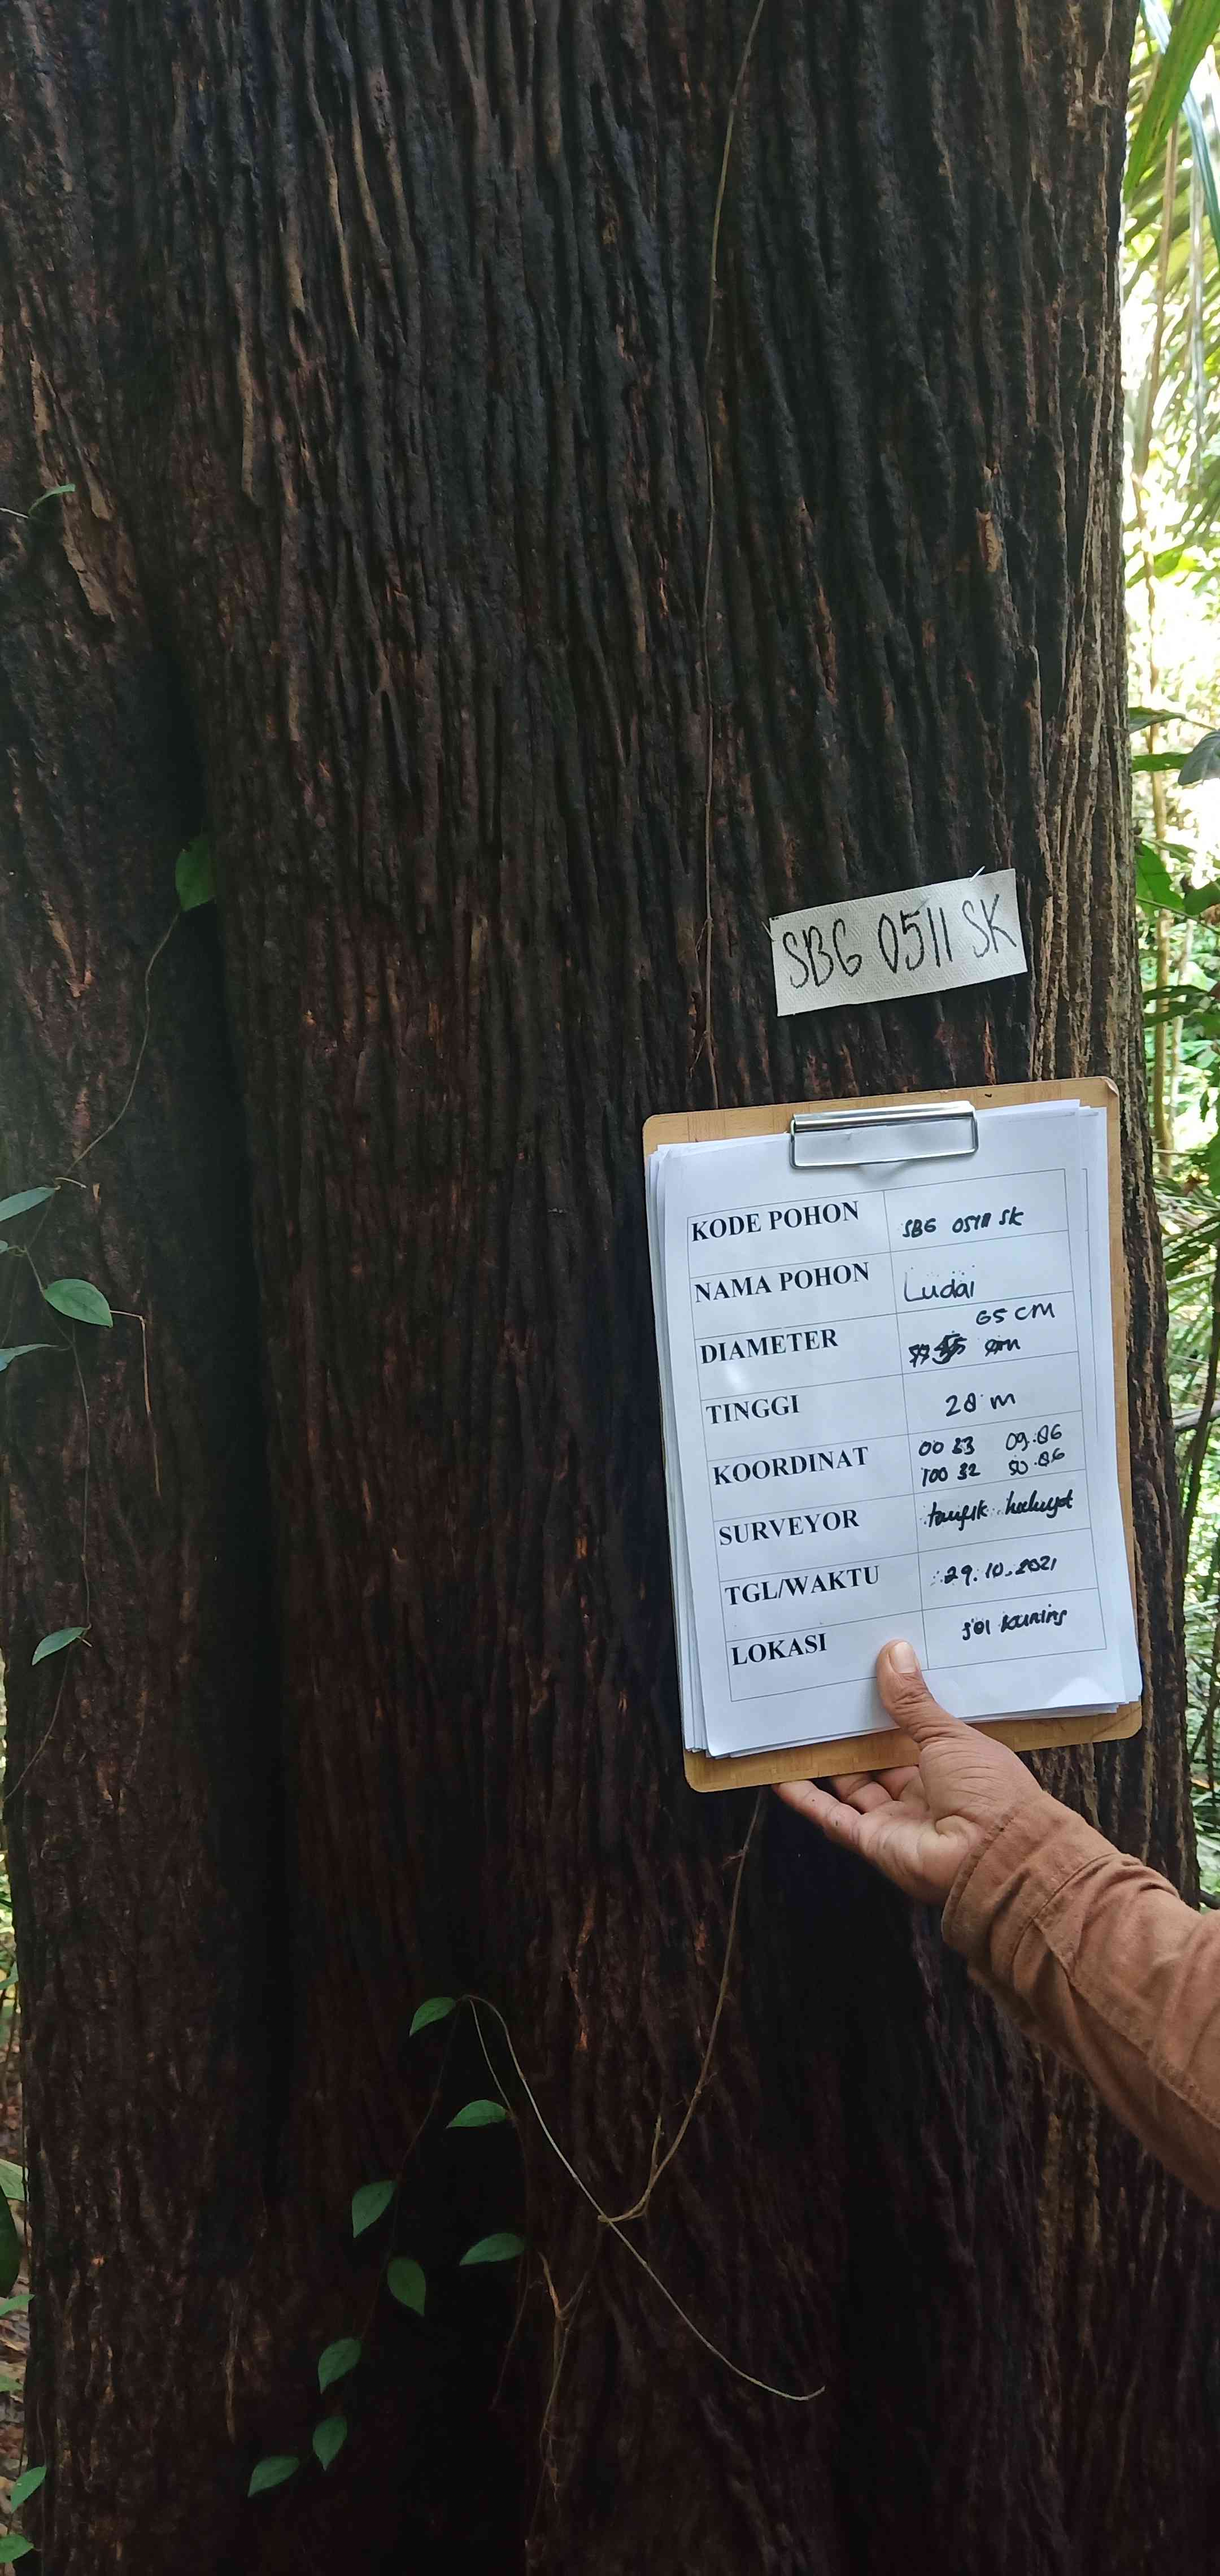 SBG 0511 SK
KODE POHON SBG 0511 SK
NAMA POHON Ludai
65 CM
DIAMETER
TINGGI 28 m
KOORDINAT 00 33 09.86
100 32 50.86
SURVEYOR taufik
TGL/WAKTU 29.10.2021
LOKASI Kuning